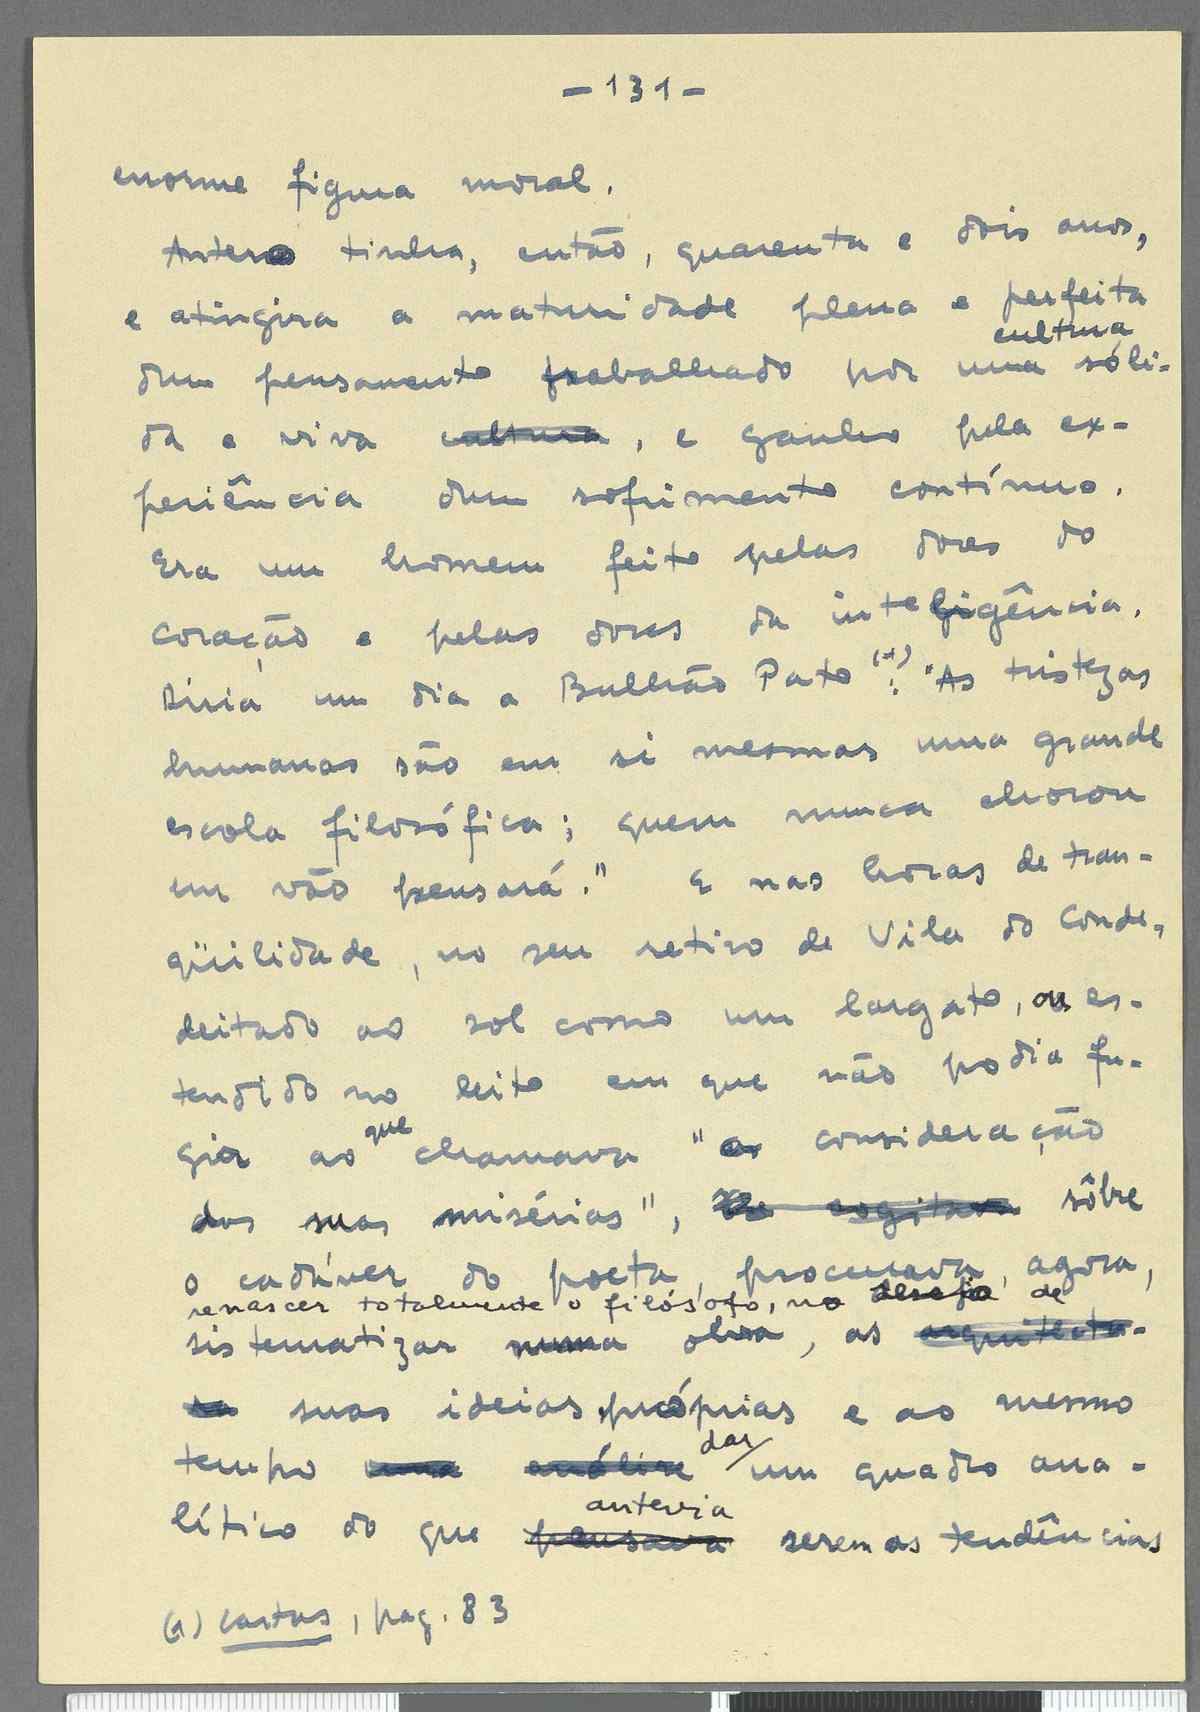 -131-
enorme figura moral.
Antero tinha, então, quarenta e dois anos,
e atingira a maturidade plena e perfeita
cultura
dum pensamento trabalhado por uma sóli-
da e viva cultura, e ganho pela ex-
periência dum sofrimento contínuo.
Era um homem feito pelas dores do
coração e pelas dores da inteligência.
Diria um dia a Bulhão Pato (1): "As tristezas
humanas são em si mesmas uma grande
escola filosófica; quem nunca chorou
em vão pensará." E nas horas de tran-
qüilidade, no seu retiro de Vila do Conde,
deitado ao sol como um largato, ou es-
tendido no leito em que não podia fu-
gir ao que chamava "a consideração
das suas misérias", cogitava sôbre
o cadáver do poeta, procurava, agora,
renascer totalmente o filósofo, no desejo de
sistematizar numa obra, as arquitecta-
ra suas ideias próprias e ao mesmo
tempo uma análise dar um quadro ana-
antevia
lítico do que pensava serem as tendências
(1) Cartas, pag. 83